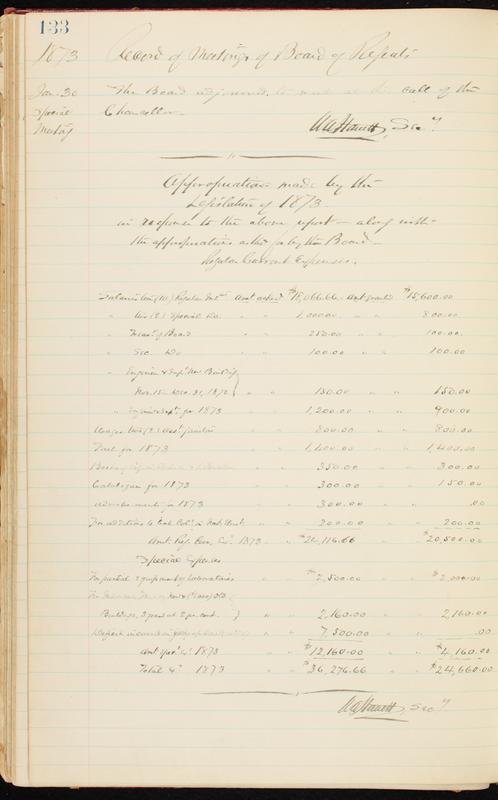 133
1873 Record of Meetings of Board of Regents
Jan. 30 The Board adjourned, to meet at the call of the
Special Chancellor.
Meeting
Secy
Appropriations made by the
Legislature of 1873
in response to the above report — along with
the appropriations asked for by the Board —
Regular Current Expenses.
Salaries (10) Regular Amt asked $18,066.66 Amt granted $15,600.00
" (2) Special Do. " " 1,000.00 " " 800.00
" Treas. of Board " " 250.00 " " 100.00
" Sec. Do " " 100.00 " " 100.00
" Engineer & Supt. New Building
Nov. 15 – Dec. 31, 1872 " 150.00 " " 150.00
" Engineer & Supt. for 1873 " " 1,200.00 " " 900.00
Wages " " 800.00 " " 800.00
Fuel for 1873 " " 1,400.00 " " 1,400.00
" " 350.00 " " 300.00
Catalogue for 1873 " " 300.00 " " 150.00
Advertisements for 1873 " " 300.00 " " .00
For additions to " " 200.00 " " 200.00
Amt. Reg. 1873 " " $24,116.66 " " $20,500.00
Special Expenses
For partial Equipment of Laboratories " $2,500.00 " " $2,000.00
Buildings, 3 years at 2 per cent. " " 2,160.00 " " 2,160.00
" " 7,500.00 " " .00
Amt 1873 " " $12,160.00 " " $4,160.00
Total 1873 $36,276.66 " " $24,660.00
Secy